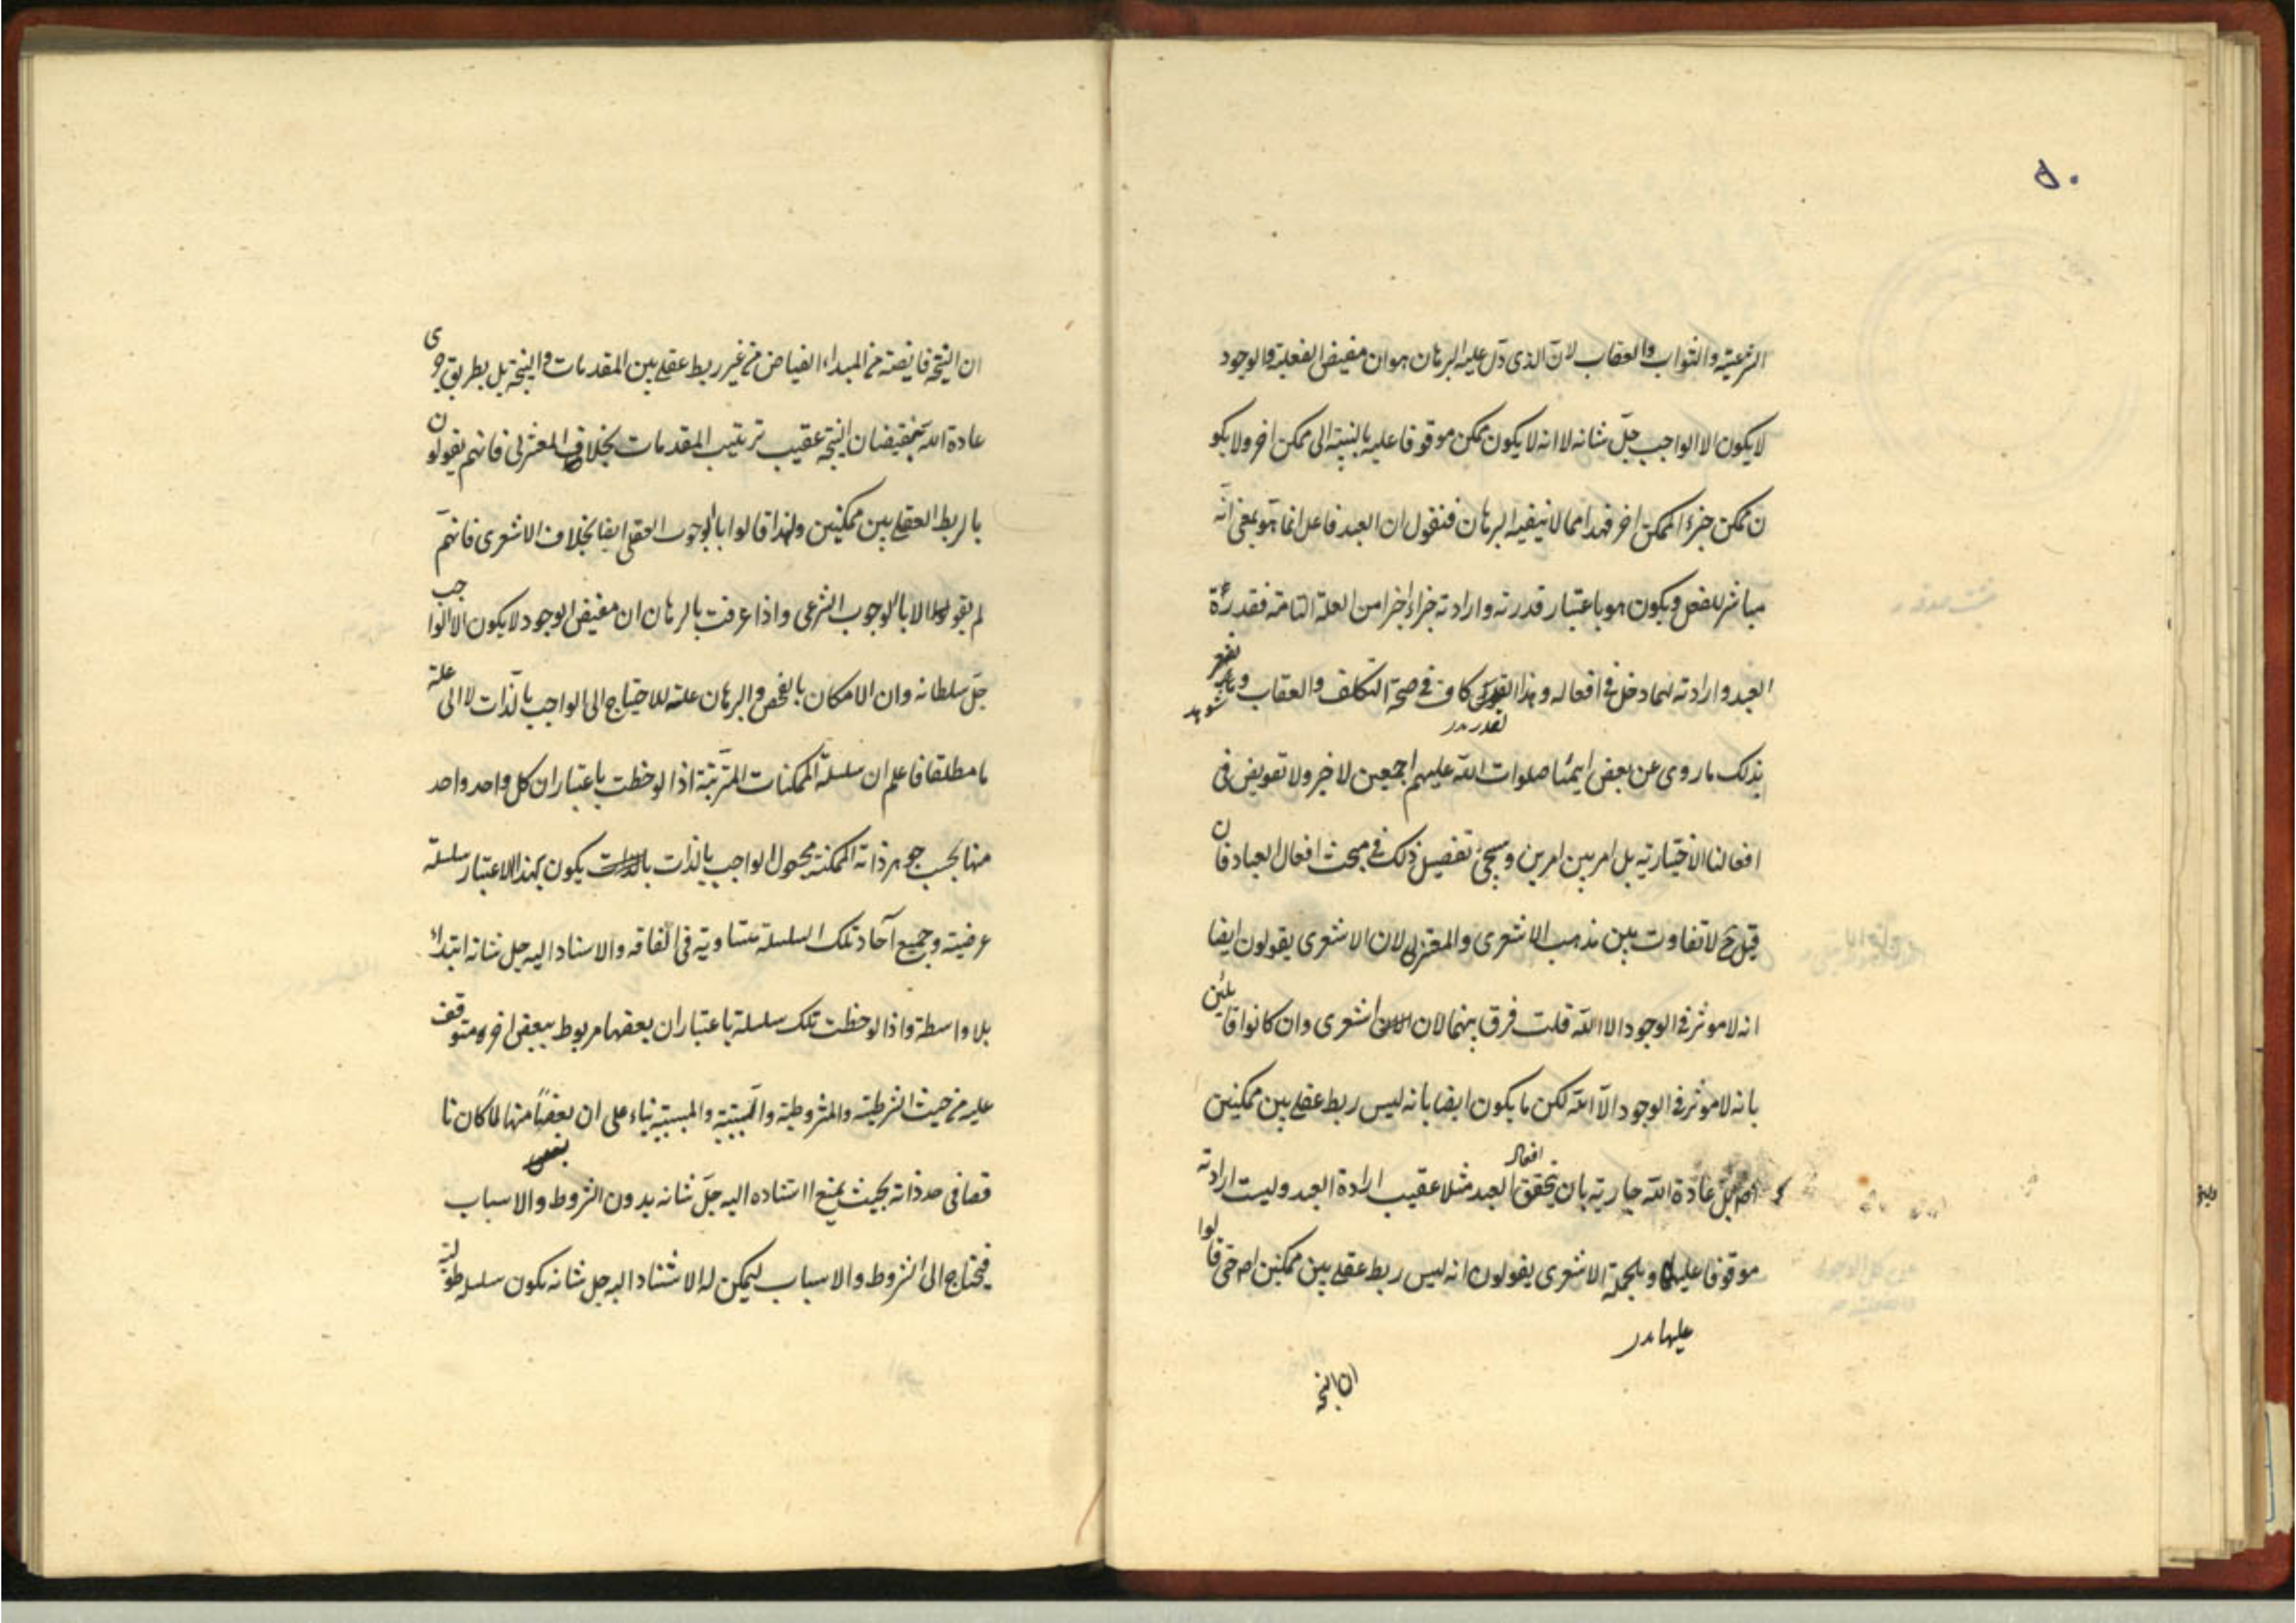 ٥٠
الشرعية والثواب والعقاب لان الذى دل عليه البرهان هو ان مفيض الفعلية والوجود
لا يكون الا الواجب جل شانه لا انه لا يكون ممكن موقوفا عليه بالنسبة الى ممكن اخر ولا يكو
ن ممكن جزء الممكن اخر فهذا مما لا ينفيه البرهان فنقول ان العبد فاعل انما هو بمعنى انه
مباشر للفعل ويكون هو باعتبار قدرته وارادته جزاء اخرا من العلة التامة فقدرة
العبد وارادته لهما دخل فى افعاله وهذا القدر كاف فى صحة التكلف والعقاب و
بذلك ما روى عن بعض ايمتنا صلوات الله عليهم اجمعين لا جبر ولا تفويض فى
افعالنا الاختيارية بل امر بين امرين وسيجئ تفصيل ذلك فى مبحث افعال العباد فان
قيل ح لا تفاوت بين مذهب الاشعرى والمعتزلى لان الاشعرى يقولون ايضا
انه لا موثر فى الوجود الا الله قلت فرق بينهما لان اشعرى وان كانوا قائلين
بانه لا موثر فى الوجود الا الله لكن ما يكون ايضا بانه ليس ربط عقلى بين ممكنين
بل عادة الله جارية بان يتحقق افعال العبد مثلا عقيب ارادة العبد وليست ارادته
موقوفا عليها وبالجملة الاشعرى يقولون انه ليس ربط عقلى بين ممكنين اصلا حتى قالوا
عليها
ان النتيجة
ان النتيجة فايضة من المبداء الفياض من غير ربط عقلى بين المقدمات والنتيجة بل بطريق جرى
عادة الله بفيضان النتيجة عقيب ترتيب المقدمات بخلاف المعتزلى فانهم يقولون
بالربط العقلى بين ممكنين ولهذا قالوا بالوجوب العقلى ايضا بخلاف الاشعرى فانهم
لم يقولوا الا بالوجوب الشرعى واذا عرفت بالبرهان ان مفيض الوجود لا يكون الا الواجب
جل سلطانه وان الامكان بالفحص والبرهان علة للاحتياج الى الواجب بالذات لا الى علة
ما مطلقا فاعلم ان سلسلة الممكنات المترتبة اذا لوحظت باعتبار ان كل واحد واحد
منها بحسب جوهر ذاته الممكنة مجعول الواجب بالذات يكون بهذا الاعتبار سلسلة
عرضية وجميع آحاد تلك السلسلة متساوية فى الفاقه والاسناد اليه جل شانه ابتداء
بلا واسطة واذا لوحظت تلك سلسلة باعتبار ان بعضها مربوط ببعض اخر ومتوقف
عليه من حيث الشرطية والمشروطية والسببية والمسببية بناء على ان بعضا منها لما كان نا
قصا فى حد ذاته بحيث يمتنع استناده اليه جل شانه بدون الشروط والاسباب
فيحتاج الى الشروط والاسباب ليمكن له الاستناد اليه جل شانه يكون سلسله طولية